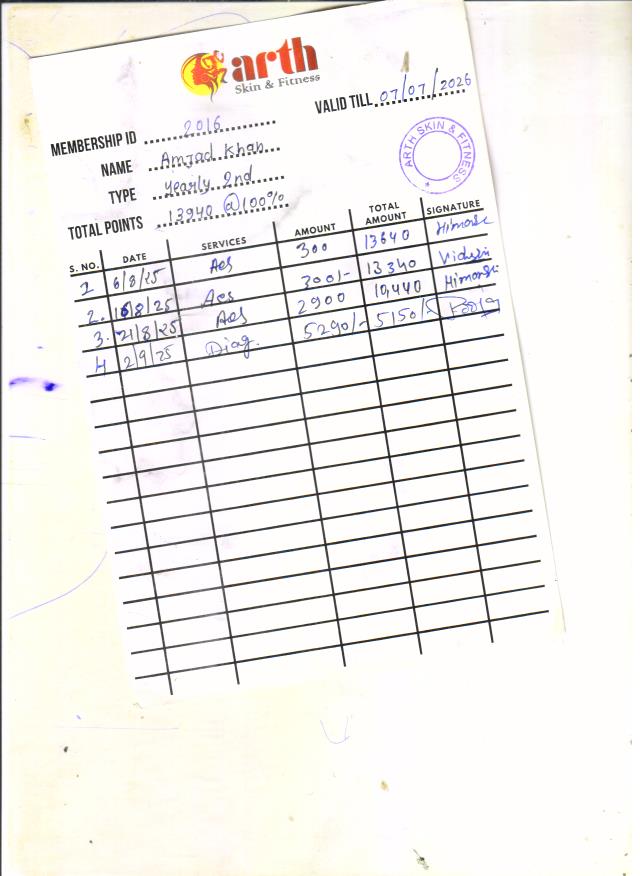 arth
Skin & Fitness
VALID TILL 07/07/2026
MEMBERSHIP ID 2016
NAME Amjad Khan
TYPE Yearly 2nd
TOTAL POINTS 13940 @100%
ARTH SKIN & FITNESS
S. NO. DATE SERVICES AMOUNT TOTAL AMOUNT SIGNATURE
1 6/8/25 Aes 300 13640
2. 16/8/25 Aes 300/- 13340
3. 21/8/25 Aes 2900 10,440
4 2/9/25 Diag. 5290/- 5150/-